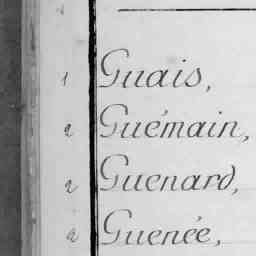 1 Guais,
2 Guémain,
2 Guenard,
2 Guenée,